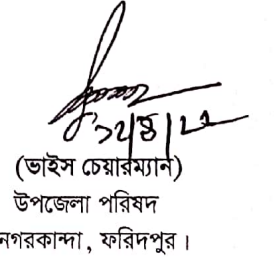 (ভাইস চেয়ারম্যান)
উপজেলা পরিষদ
নগরকান্দা, ফরিদপুর।